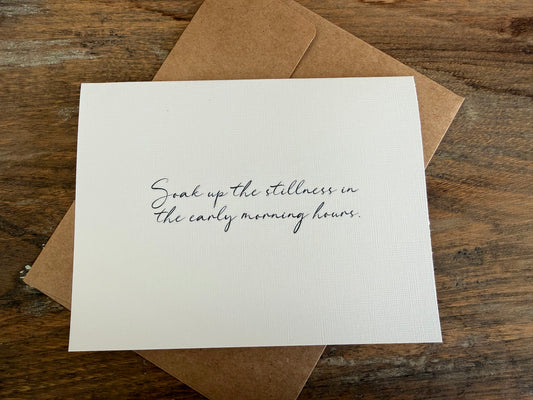 Soak up the stillness in
the early morning hours.